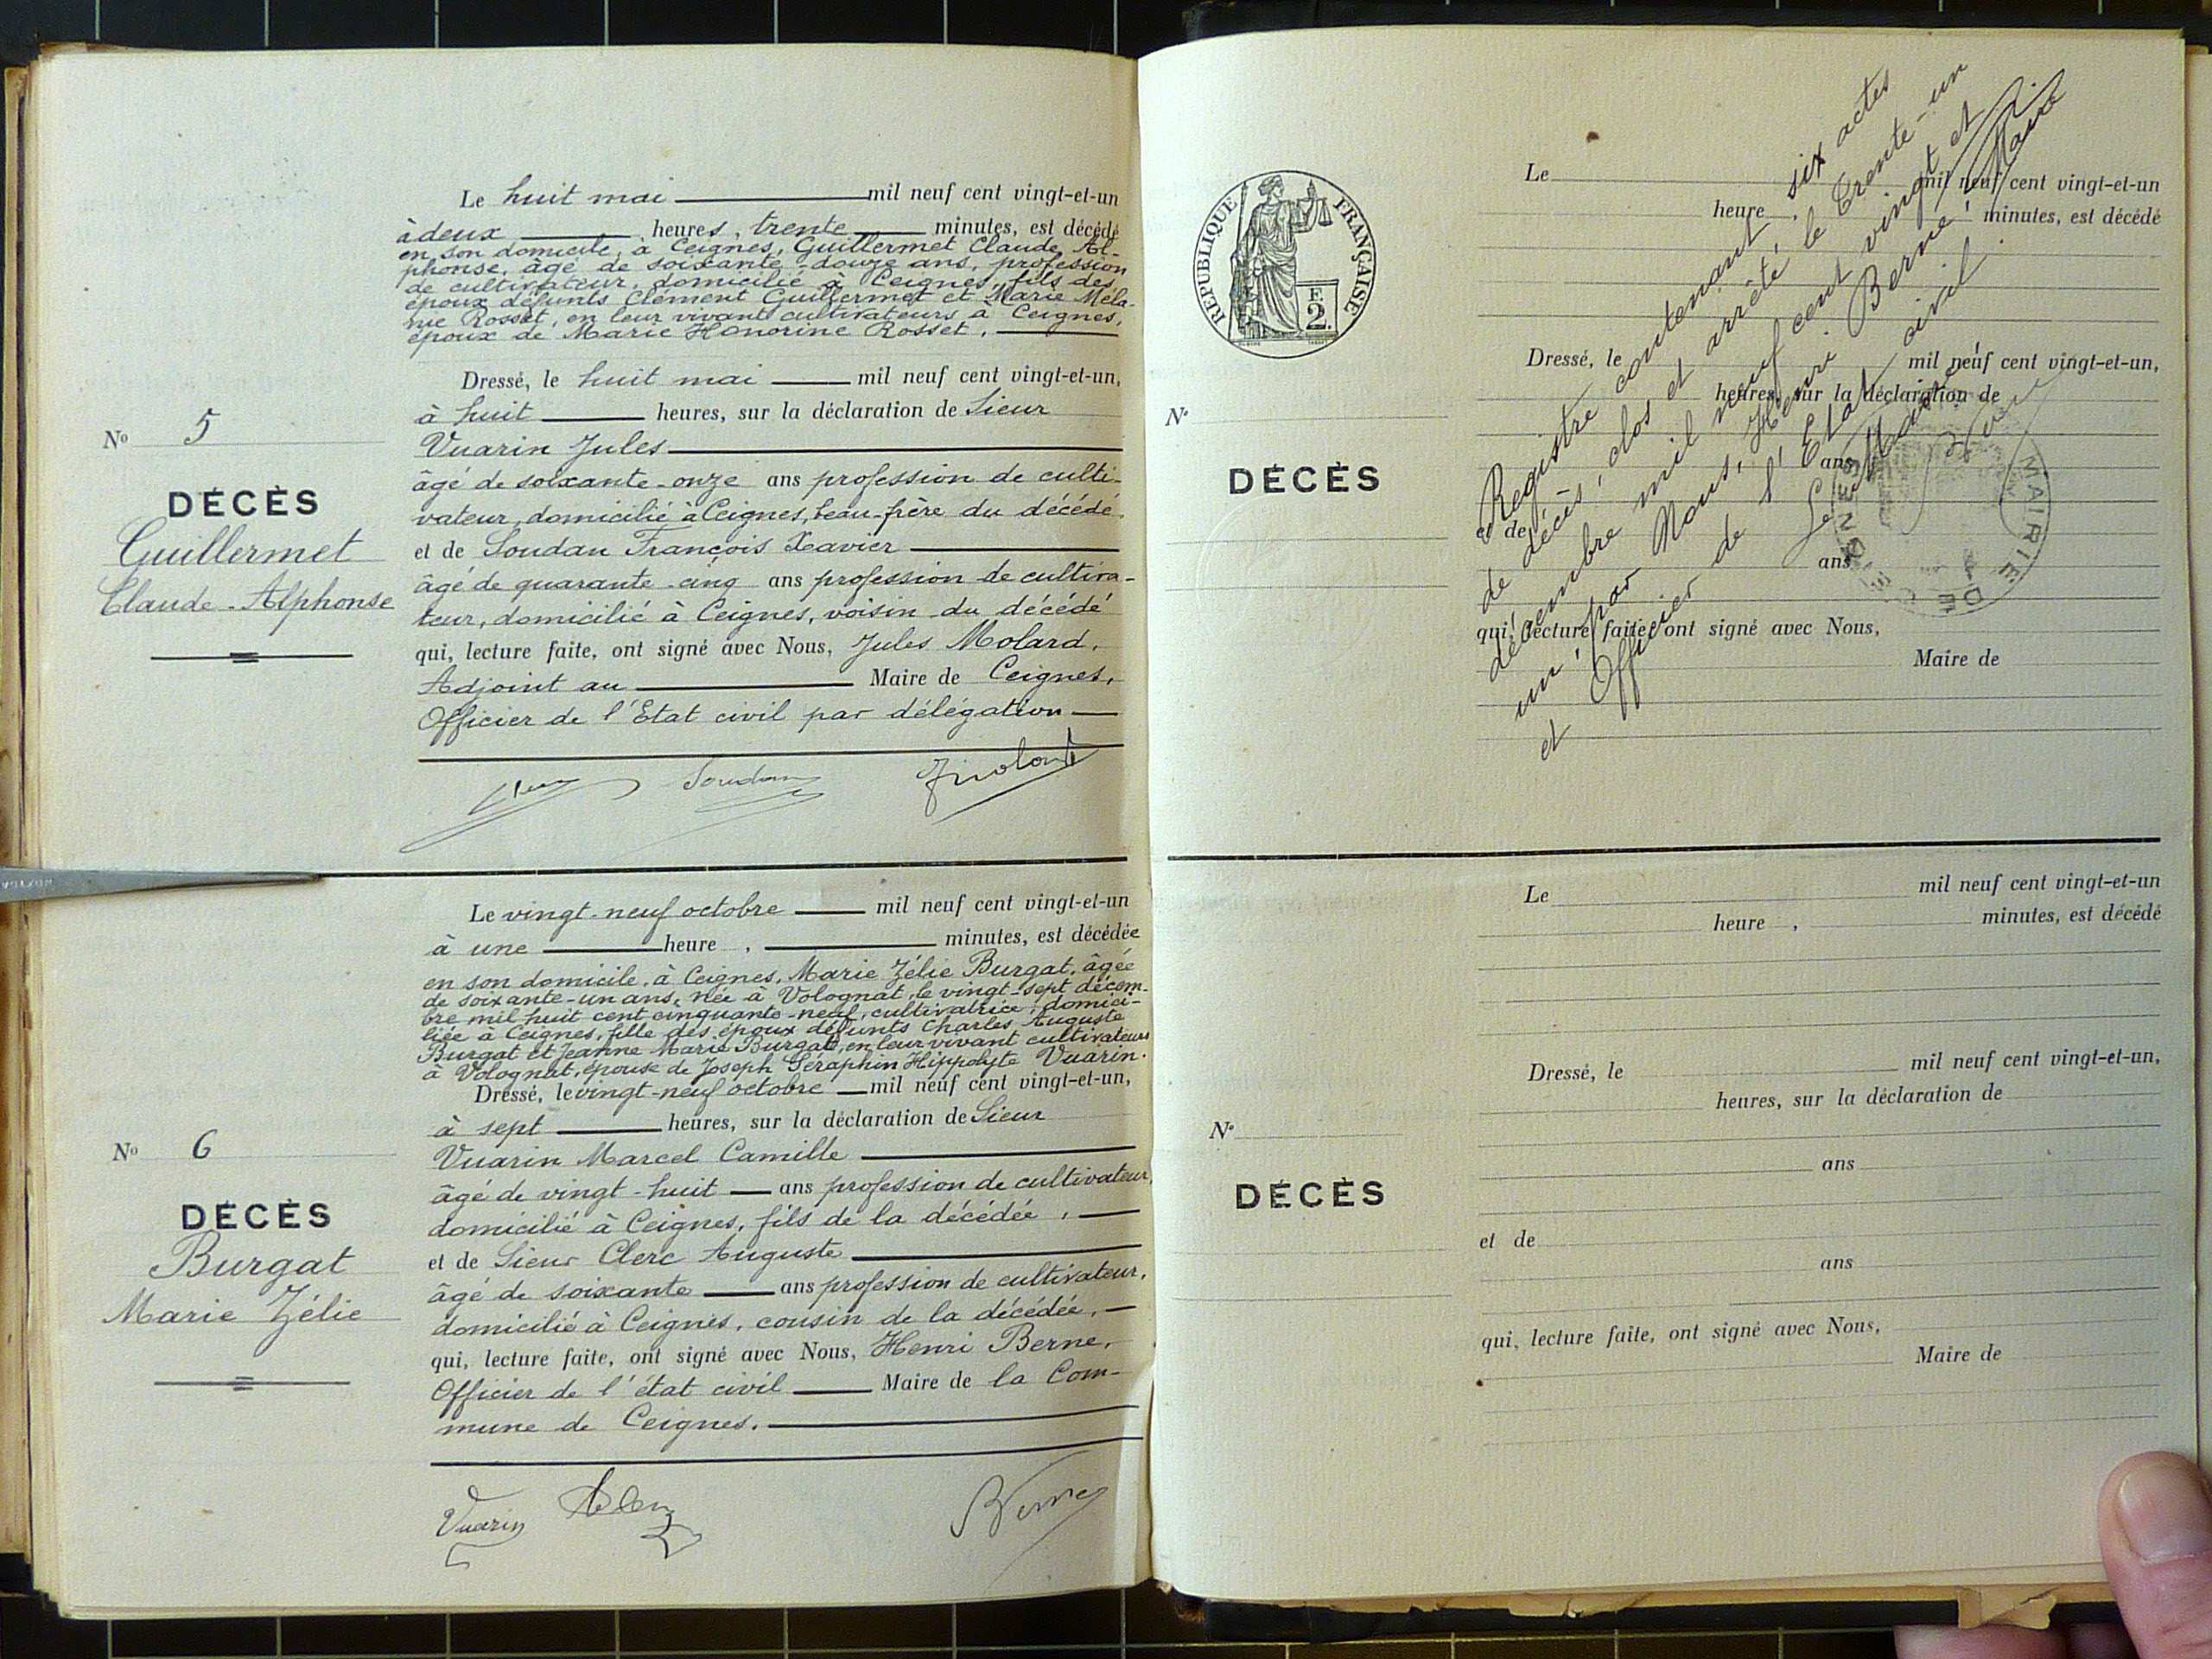 Le huit mai mil neuf cent vingt-et-un
à deux heures, trente minutes, est décédé
en son domicile, à Ceignes, Guillermet Claude, Al-
phonse, âgé de soixante-douze ans, profession
de cultivateur, domicilié à Ceignes, fils des
époux défunts Clément Guillermet et Marie Méla-
nie Rosset, en leur vivant cultivateurs à Ceignes,
époux de Marie Honorine Rosset.
Dressé, le huit mai mil neuf cent vingt-et-un,
à huit heures, sur la déclaration de Sieur
Vuarin Jules
âgé de soixante-onze ans profession de culti-
vateur, domicilié à Ceignes, beau-frère du décédé
et de Soudan François Xavier
âgé de quarante-cinq ans profession de cultiva-
teur, domicilié à Ceignes, voisin du décédé
qui, lecture faite, ont signé avec Nous, Jules Molard,
Adjoint au Maire de Ceignes,
Officier de l'Etat civil par délégation
Soudan
JMolard
No 5
DÉCÈS
Guillermet
Claude-Alphonse
Le vingt-neuf octobre mil neuf cent vingt-et-un
à une heure , minutes, est décédée
en son domicile, à Ceignes, Marie Zélie Burgat, âgée
de soixante-un ans, née à Volognat, le vingt-sept décem-
bre mil huit cent cinquante-neuf, cultivatrice, domici-
liée à Ceignes, fille des époux défunts Charles Auguste
Burgat et Jeanne Marie Burgat, en leur vivant cultivateurs
à Volognat, épouse de Joseph Séraphin Hippolyte Vuarin.
Dressé, le vingt-neuf octobre mil neuf cent vingt-et-un,
à sept heures, sur la déclaration de Sieur
Vuarin Marcel Camille
âgé de vingt-huit ans profession de cultivateur,
domicilié à Ceignes, fils de la décédée,
et de Sieur Clerc Auguste
âgé de soixante ans profession de cultivateur,
domicilié à Ceignes, cousin de la décédée,
qui, lecture faite, ont signé avec Nous, Henri Berne,
Officier de l'état civil Maire de la Com-
mune de Ceignes.
Vuarin
Berne
No 6
DÉCÈS
Burgat
Marie Zélie
RÉPUBLIQUE FRANÇAISE
F.
2.
No
DÉCÈS
Le mil neuf cent vingt-et-un
heure , minutes, est décédé
Dressé, le mil neuf cent vingt-et-un,
heures, sur la déclaration de
ans
et de
ans
qui, lecture faite, ont signé avec Nous,
Maire de
Registre contenant six actes
de décès, clos et arrêté le trente-un
décembre mil neuf cent vingt et
un, par Nous, Henri Berne, Maire
et Officier de l'Etat civil.
Le Maire
MAIRIE DE CEIGNES
No
DÉCÈS
Le mil neuf cent vingt-et-un
heure , minutes, est décédé
Dressé, le mil neuf cent vingt-et-un,
heures, sur la déclaration de
ans
et de
ans
qui, lecture faite, ont signé avec Nous,
Maire de